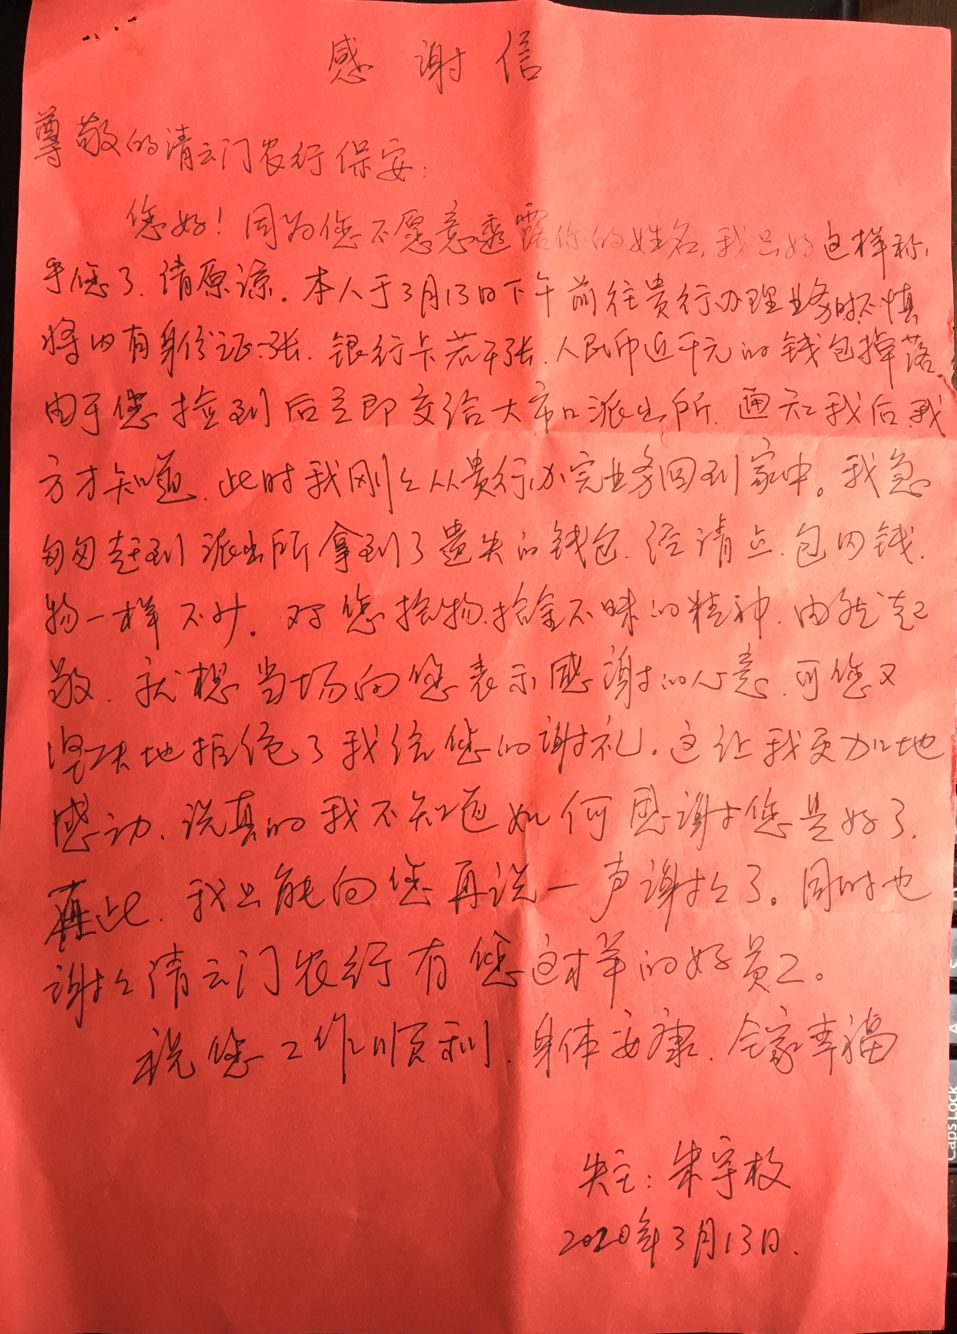 感谢信
尊敬的清云门农行保安：
您好！因为您不愿意透露你的姓名，我只好这样称
乎您了，请原谅。本人于3月13日下午前往贵行办理业务时不慎
将内有身份证一张、银行卡若干张、人民币近千元的钱包掉落。
由于您捡到后立即交给大市口派出所，通知我后我
方才知道，此时我刚刚从贵行办完业务回到家中。我急
匆匆赶到派出所拿到了遗失的钱包，经请点，包内钱
物一样不少。对您捡物拾金不昧的精神，由然起
敬，就想当场向您表示感谢的心意，可您又
坚决地拒绝了我给您的谢礼。这让我更加地
感动，说真的我不知道如何感谢您是好了，
再此，我只能向您再说一声谢谢了。同时也
谢谢清云门农行有您这样的好员工。
祝您工作顺利，身体安康，全家幸福
失主：朱宇枚
2020年3月13日.
Caps Lock